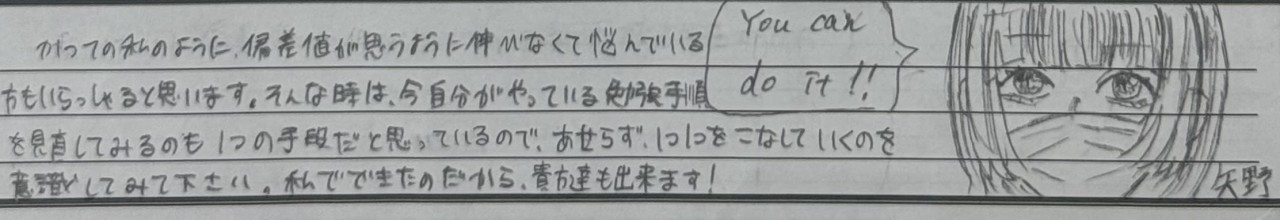 かつての私のように、偏差値が思うように伸びなくて悩んでいる
方もいらっしゃると思います。そんな時は、今自分がやっている勉強手順
を見直してみるのも1つの手段だと思っているので、あせらず、1つ1つをこなしていくのを
意識してみて下さい。私でできたのだから、貴方達も出来ます!
You can
do it!!
矢野